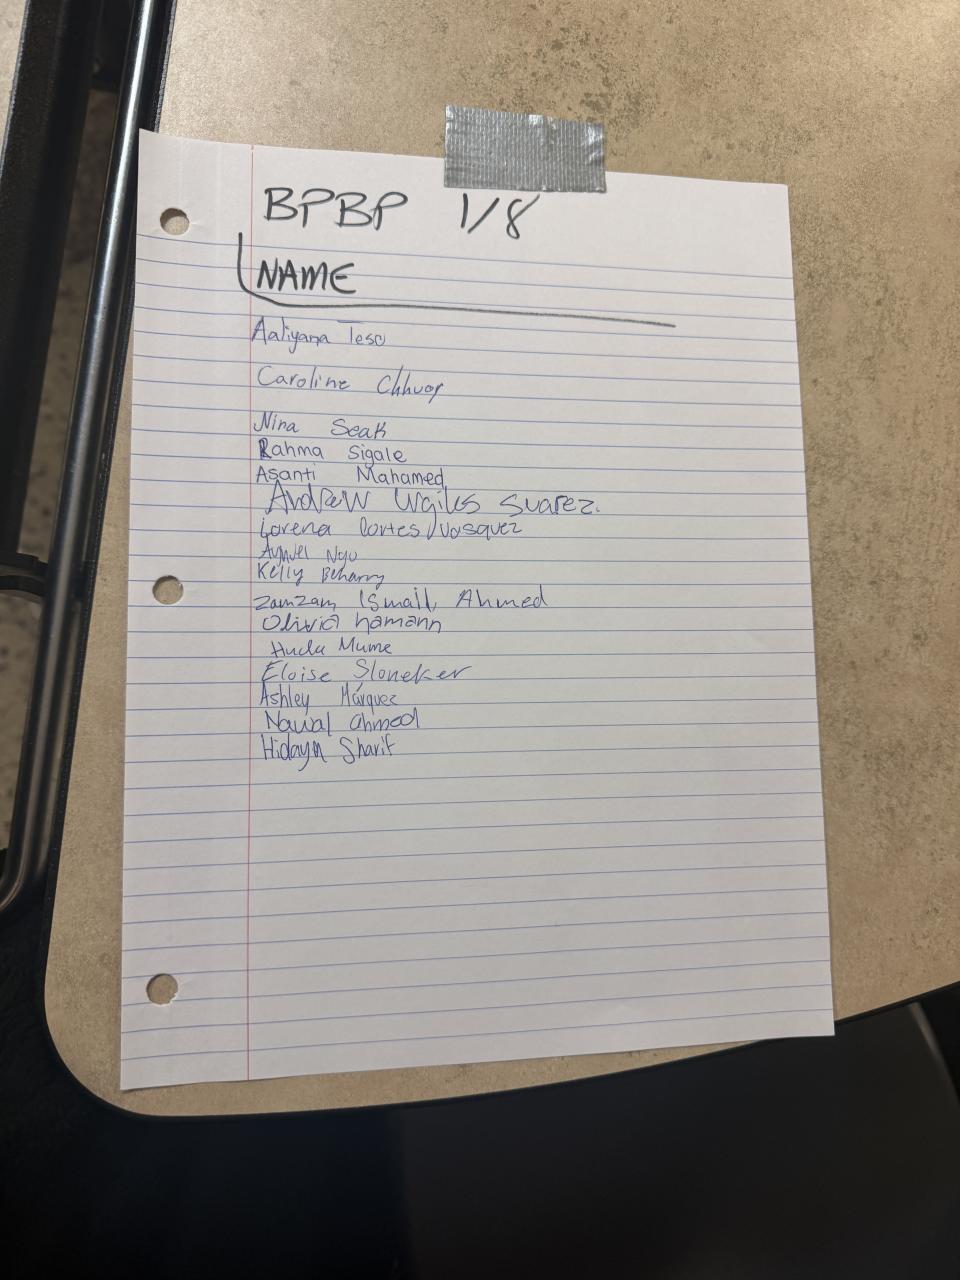 BPBP 1/8
NAME
Aaliyana Teso
Caroline Chhuoy
Nina Seak
Rahma Sigale
Asanti Mahamed
Andrew Suarez.
Lorena Cortes Vasquez
Ngo
Kelly Beharry
Zamzam Ismail Ahmed
Olivia hamann
Huda Mume
Eloise Sloneker
Ashley Márquez
Nawal ahmed
Hidaya Sharif